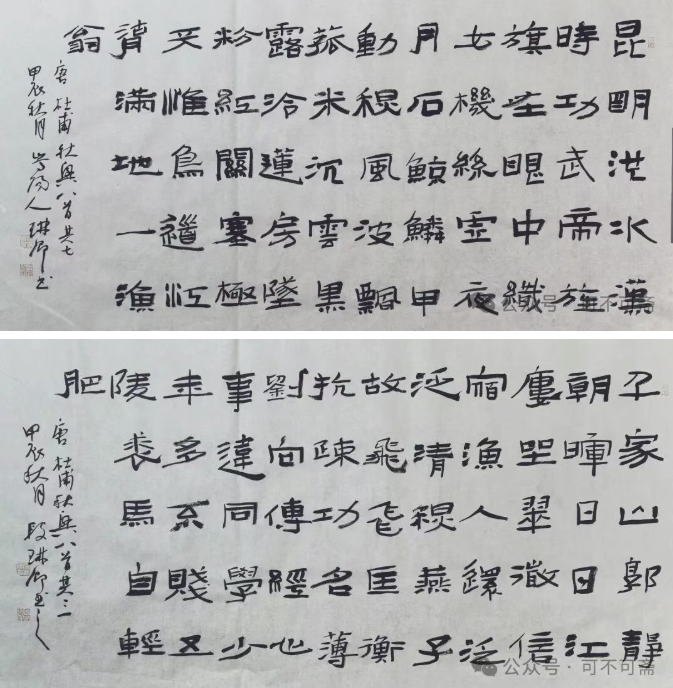 昆明池水漢
時功武帝旌
旗在眼中織
女機絲虛夜
月石鯨鱗甲
動秋風波飄
菰米沉雲黑
露冷蓮房墜
粉紅關塞極
天惟鳥道江
湖滿地一漁
翁
唐杜甫秋興八首其七
甲辰秋月人琳卿書
公众号·可不可斋
千家山郭靜
朝暉日日江
樓坐翠微信
宿漁人還泛
泛清秋燕子
故飛飛匡衡
抗疎功名薄
劉向傳經心
事違同學少
年多不賤五
陵裘馬自輕
肥
唐杜甫秋興八首其三
甲辰秋月段琳卿書之
公众号·可不可斋